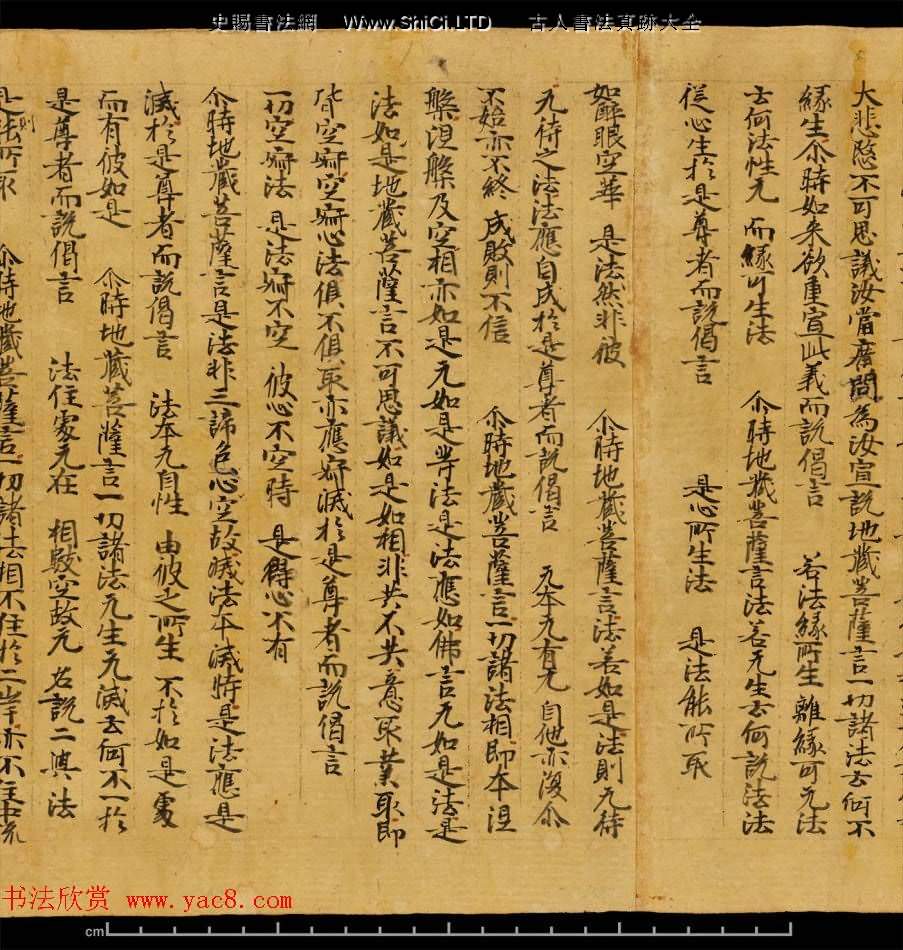 史賜書法網 Www.ShiCi.LTD 古人書法真跡大全
大悲愍不可思議汝當廣問為汝宣說地藏菩薩言一切諸法云何不
緣生尒時如来欲重宣此義而說偈言 若法緣所生 離緣可无法
云何法性无 而緣可生法 尒時地藏菩薩言法若无生云何說法法
從心生於是尊者而說偈言 是心所生法 是法能所取
如醉眼空華 是法然非彼 尒時地藏菩薩言法若如是法則无待
无待之法法應自成於是尊者而說偈言 元本无有无 自他亦復尒
不始亦不終 成敗則不住 尒時地藏菩薩言一切諸法相即本涅
槃涅槃及空相亦如是无如是等法是法應如佛言无如是法是
法如是地藏菩薩言不可思議如是如相非共不共意取業取即
皆空寂空寂心法俱不俱取亦應寂滅於是尊者而說偈言
一切空寂法 是法寂不空 彼心不空時 是得心不有
尒時地藏菩薩言是法非三諦色心空故滅法本滅時是法應是
滅於是尊者而說偈言 法本元自性 由彼之所生 不於如是處
而有彼如是 尒時地藏菩薩言一切諸法无生无滅云何不一於
是尊者而說偈言 法住處无在 相數空故无 名說二與法
是則法所取 尒時地藏菩薩言一切諸法相不住於二岸亦不住中流
书法欣赏 www.yac8.com
cm